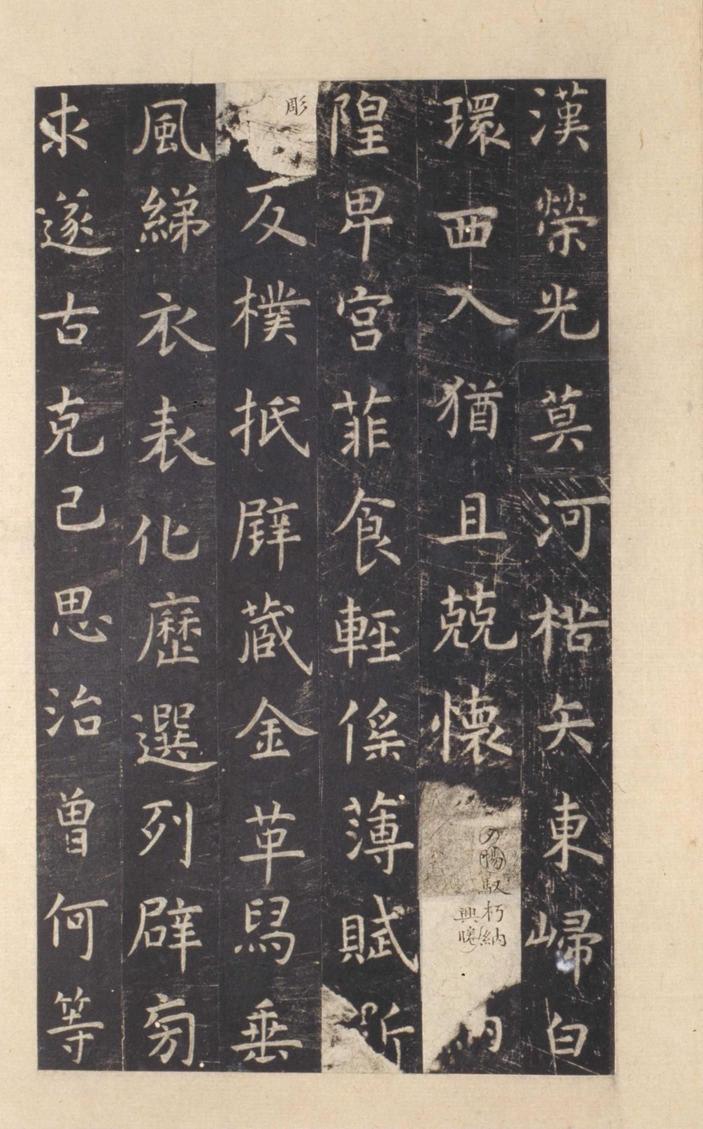 漢榮光莫河楛矢東歸白
環西入猶且兢懷夕惕馭朽納
隍卑宮菲食輕徭薄賦斲
彫反樸抵璧藏金革舄垂
風綈衣表化歷選列辟旁
求遂古克己思治曾何等